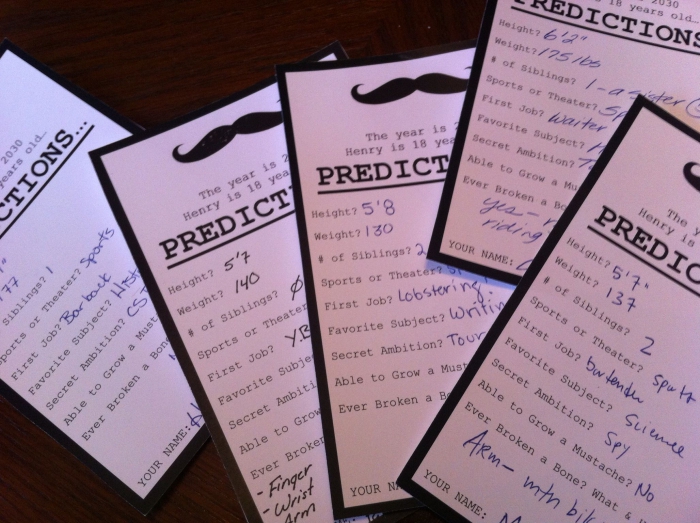 2030
years old...
CTIONS...
77
Siblings? 1
Sports or Theater? Sports
First Job? Barback
Favorite Subject? Hist
Secret Ambition? CS
Able to Grow a Mustache
Ever Broken a Bone
YOUR NAME:
The year is
Henry is 18 yea
PREDICTI
Height? 5'7
Weight? 140
# of Siblings? Ø
Sports or Theater
First Job? YB
Favorite Subje
Secret Ambiti
Able to Grow
Ever Broken
- Finger
- Wrist
Arm
The year is 2
Henry is 18 yea
PREDICT
Height? 5'8
Weight? 130
# of Siblings? 2
Sports or Theater?
First Job? Lobstering
Favorite Subject? Writin
Secret Ambition? Tour
Able to Grow a Must
Ever Broken a Bo
YOUR N
2030
is 18 years old…
PREDICTIONS
Height? 6'2"
Weight? 175 lbs
# of Siblings? 1 - a sister
Sports or Theater? Sp
First Job? Waiter
Favorite Subject?
Secret Ambition?
Able to Grow a Mu
Ever Broken a Bon
yes-
riding
YOUR NAME:
The year
Henry is
PREDIC
Height? 5'7"
Weight? 137
# of Siblings? 2
Sports or Theater? Sports
First Job? bartender
Favorite Subject? Science
Secret Ambition? Spy
Able to Grow a Mustache? No
Ever Broken a Bone? What &
Arm- mtn bik
YOUR NAME: